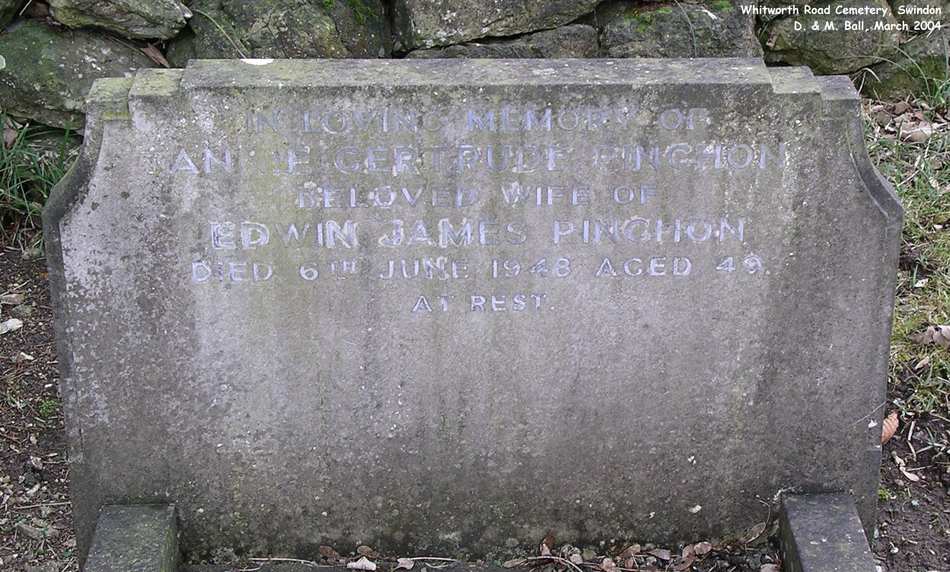 Whitworth Road Cemetery, Swindon
D. & M. Ball, March 2004
IN LOVING MEMORY OF
GERTRUDE PINCHON
BELOVED WIFE OF
EDWIN JAMES PINCHON
DIED 6TH JUNE 1948 AGED 49.
AT REST.